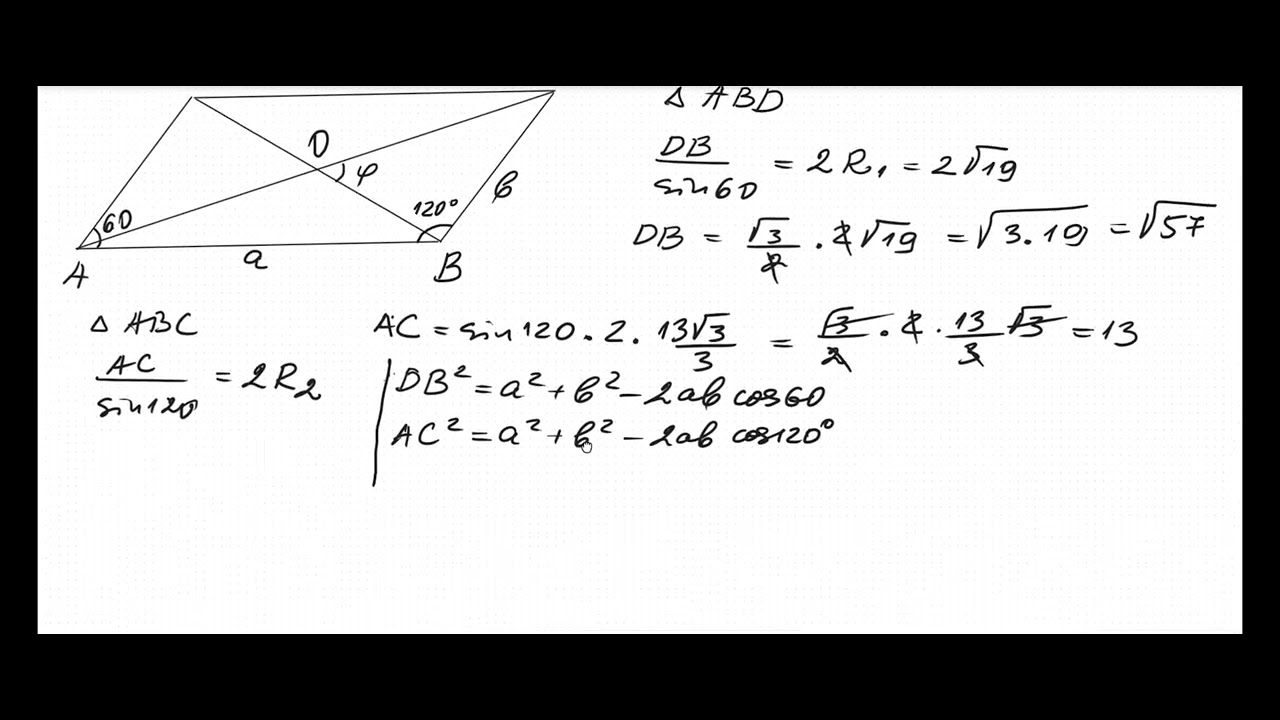 O
φ
60
120°
b
A
a
B
Δ ABD
DB/sin60 = 2R₁ = 2√19
DB = √3/2 · 2√19 = √3.19 = √57
Δ ABC
AC/sin120 = 2R₂
AC = sin120 . 2 . 13√3/3 = √3/2 . 2 . 13/3 √3 = 13
DB² = a² + b² - 2ab cos60
AC² = a² + b² - 2ab cos120°